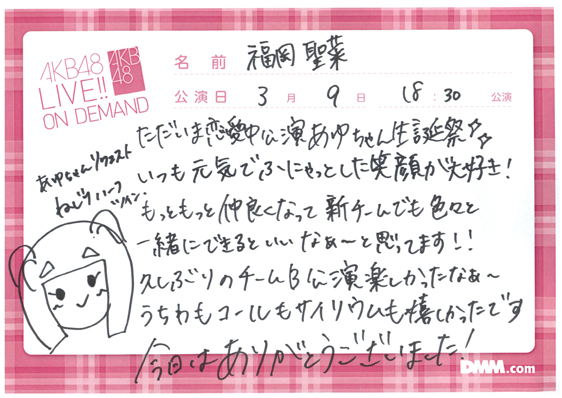 AKB48
LIVE!!
ON DEMAND
AKB
48
名前 福岡 聖菜
公演日 3月 9日 18:30 公演
ただいま恋愛中公演あゆちゃん生誕祭☆☆
いつも元気でふにゃっとした笑顔が大好き!
あゆちゃんリクエスト
ねじりハーフ
ツイン.
もっともっと仲良くなって新チームでも色々と
一緒にできるといいなぁ〜と思ってます!!
久しぶりのチームB公演楽しかったなぁ〜
うちわもコールもサイリウムも嬉しかったです
今日はありがとうございました!
DMM.com